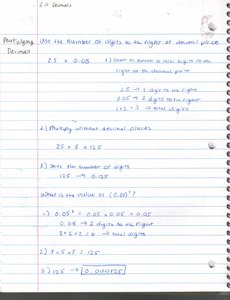 2.0 Decimals
Multiplying Decimals
Use the number of digits to the right of decimal place
2.5 × 0.05
1) Count the number of total digits to the
right of the decimal point
2.5 → 1 digit to the right
0.05 → 2 digits to the right
1+2 = 3 → total digits
2) Multiply without decimal places
25 × 5 = 125
3) the number of digits
125 → 0.125
What is the value of (0.05)³?
1) 0.05³ = 0.05 × 0.05 × 0.05
0.05 → 2 digits to the right
2+2+2 = 6 → total digits
2) 5 × 5 × 5 = 125
3.) 125 → 0.000125